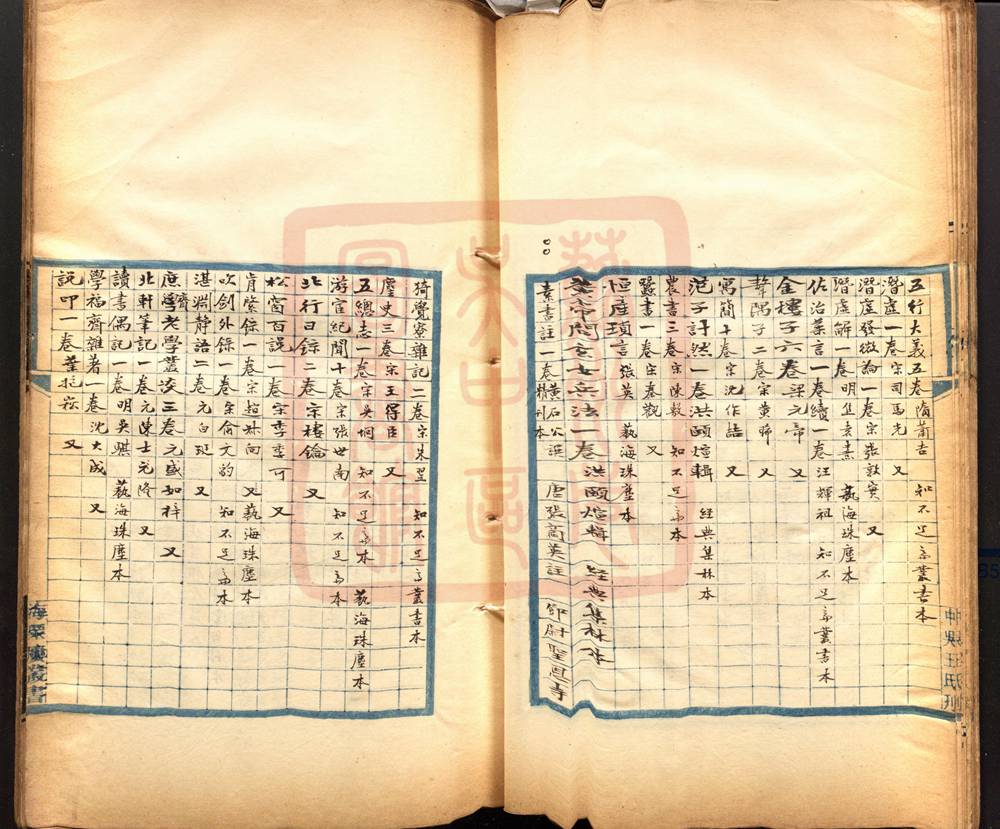 五行大義五卷 隋蕭吉 知不足齋叢書本
潛虛一卷 宋司馬光 又
潛虛發微論一卷 宋張敦實 又
潛虛解一卷 明焦袁熹 藝海珠塵本
佐治藥言一卷續一卷 汪輝祖 知不足齋叢書本
金樓子六卷 梁元帝 又
聱隅子二卷 宋黃晞 又
寓簡十卷 宋沈作喆 又
范子計然一卷 洪頤煊輯 經典集林本
農書三卷 宋陳敷 知不足齋本
蠶書一卷 宋秦觀 又
恒產瑣言 張英 藝海珠塵本
黃帝問玄女兵法一卷 洪頤煊輯 經典集林本
素書註一卷 精刊本 黃石公譔 唐張商英註 鄧尉聖恩寺
猗覺寮雜記二卷 宋朱翌 知不足齋叢書本
麈史三卷 宋王得臣 又
五總志一卷 宋吳坰 知不足齋本 藝海珠塵本
游宦紀聞十卷 宋張世南 知不足齋本
北行日錄二卷 宋樓鑰 又
松窗百說一卷 宋李季可 又
肯綮錄一卷 宋趙叔向 又藝海珠塵本
吹劍外錄一卷 宋俞文豹 知不足齋本
湛淵靜語二卷 元白珽 又
庶齋老學叢談三卷 元盛如梓 又
北軒筆記一卷 元陳士元隆 又
讀書偶記一卷 明吳騏 藝海珠塵本
學福齋雜著一卷 沈大成 又
說叩一卷 葉抱崧 又
海粟樓叢書
中吳王氏刊